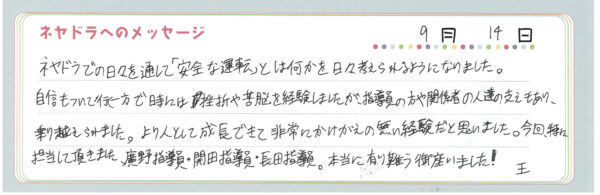 ネヤドラへのメッセージ
9月 14日
ネヤドラでの日々を通して「安全な運転」とは何かを日々考えられるようになりました。
自信もついて行く一方で時には挫折や苦脳を経験しましたが、指導員の方や関係者の人達の支えもあり、
乗り越えられました。より人として成長できて非常にかけがえの無い経験だと思いました。今回、特に
担当して頂きました 廣野指導員・開田指導員・長田指導員。本当に有り難う御座いました!
王